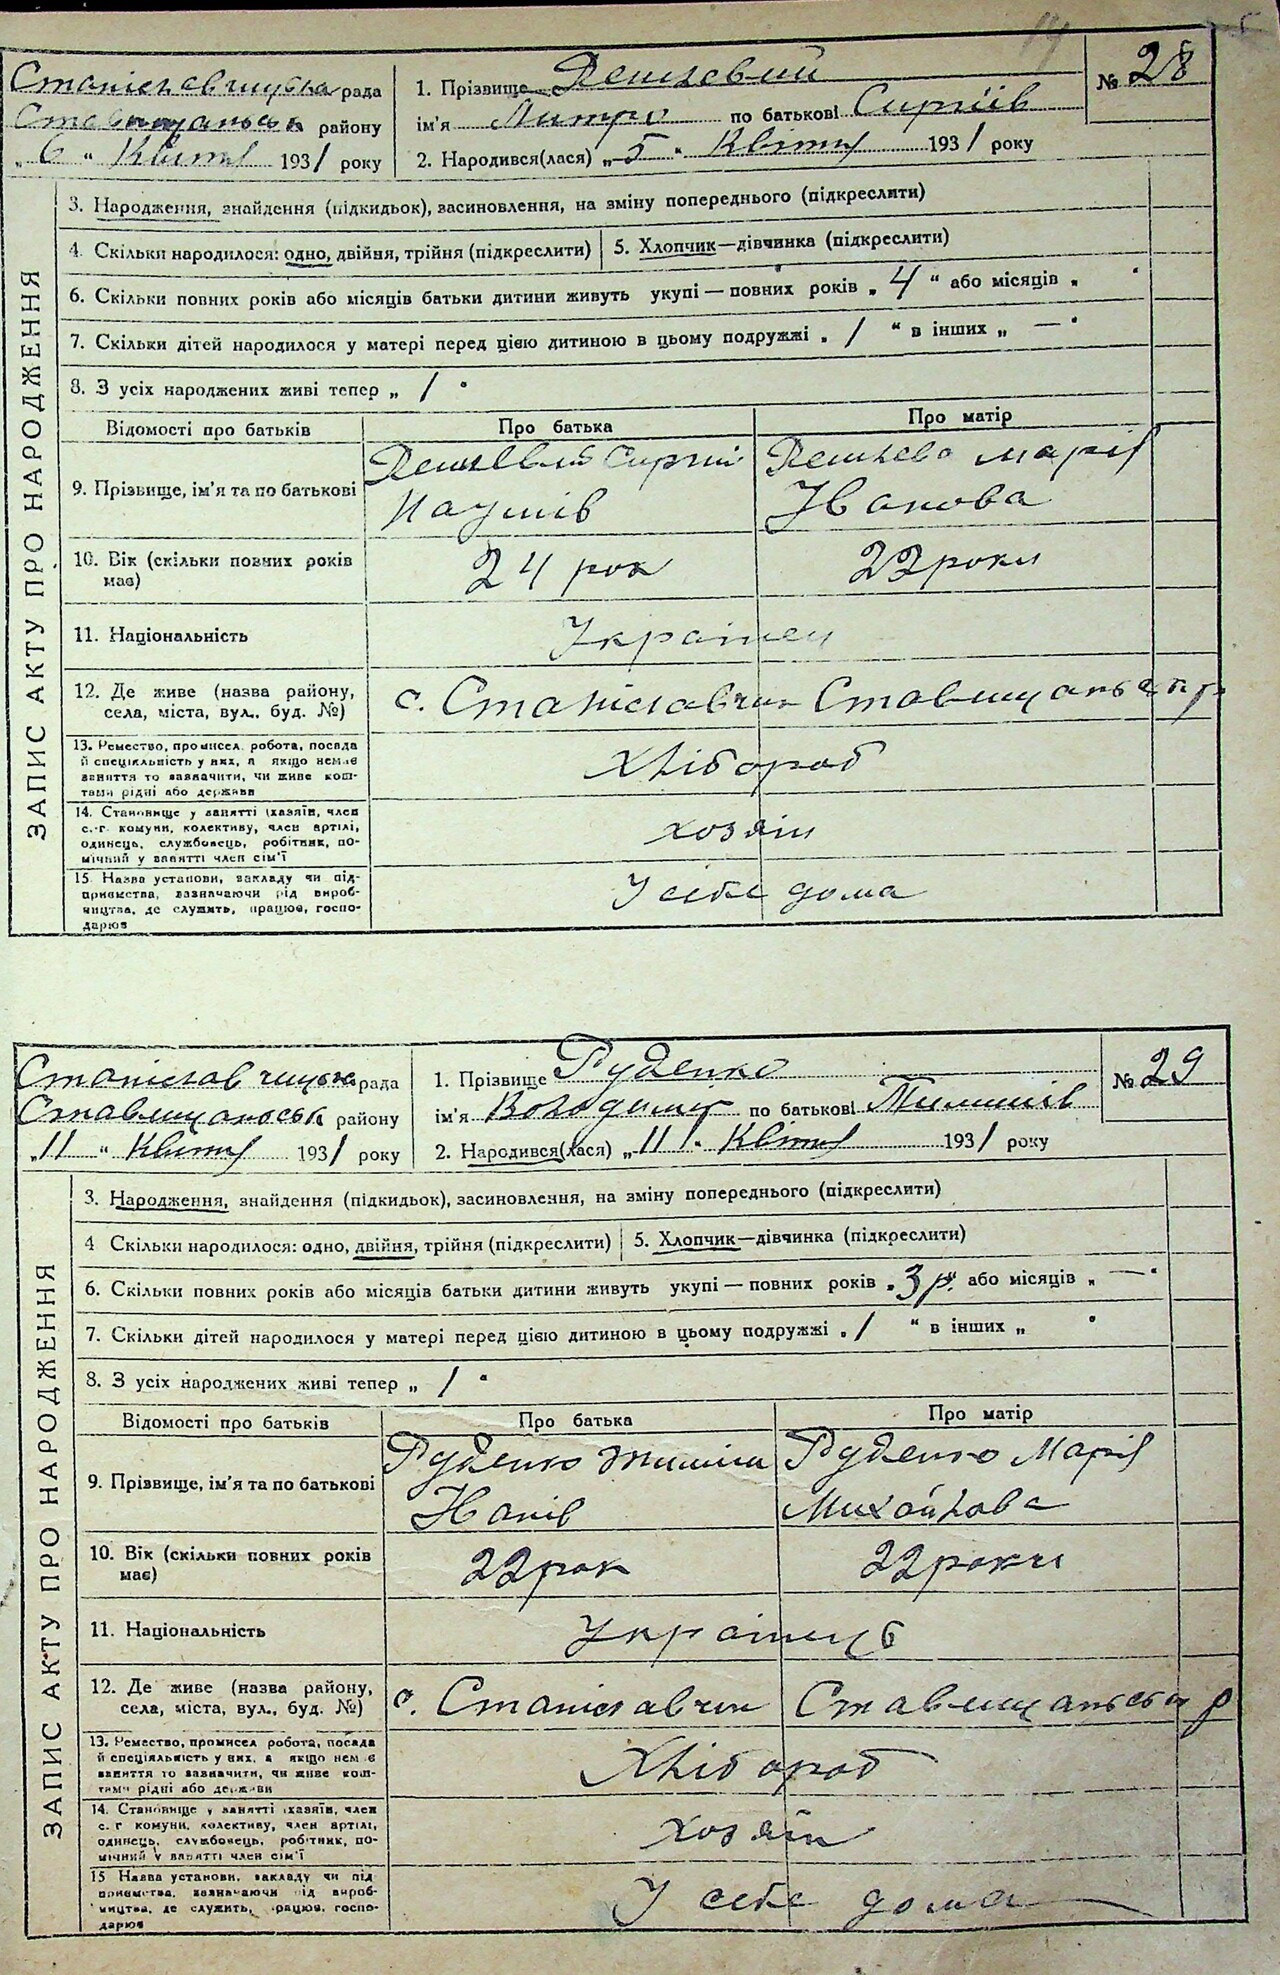 14
Станіславчицька рада
Ставищанськ району
„ 6 “ Квітня 1931 року
1. Прізвище
ім'я Митро по батькові Сиргіів
2. Народився(лася) „ 5 “ Квітня 1931 року
№ 28
ЗАПИС АКТУ ПРО НАРОДЖЕННЯ
3. Народження, знайдення (підкидьок), засиновлення, на зміну попереднього (підкреслити)
4. Скільки народилося: одно, двійня, трійня (підкреслити)
5. Хлопчик—дівчинка (підкреслити)
6. Скільки повних років або місяців батьки дитини живуть укупі — повних років „ 4 “ або місяців „ “
7. Скільки дітей народилося у матері перед цією дитиною в цьому подружжі „ 1 “ в інших „ — “
8. З усіх народжених живі тепер „ 1 “
Відомості про батьків
Про батька
Про матір
9. Прізвище, ім'я та по батькові
Сиргій
Наумів
Марія
Иванова
10. Вік (скільки повних років
має)
24 рок
22 роки
11. Національність
Українец
12. Де живе (назва району,
села, міста, вул., буд. №)
с. Станіславчик Ставищанськ р
13. Ремество, промисел, робота, посада
й спеціяльність у них, а якщо немає
заняття то зазначити, чи живе кош-
тами рідні або держави
Хлібороб
14. Становище у занятті (хазяїн, член
с.-г. комуни, колективу, член артілі,
одинець, службовець, робітник, по-
мічний у занятті член сім'ї
хозяін
15. Назва установи, закладу чи під-
приємства, зазначаючи рід вироб-
ництва, де служить, працює, госпо-
дарює
У себе дома
Станіславчицька рада
Ставищанськ району
„ 11 “ Квітня 1931 року
1. Прізвище Руденко
ім'я Володимир по батькові Тимишів
2. Народився(лася) „ 11 “ Квітня 1931 року
№ 29
ЗАПИС АКТУ ПРО НАРОДЖЕННЯ
3. Народження, знайдення (підкидьок), засиновлення, на зміну попереднього (підкреслити)
4 Скільки народилося: одно, двійня, трійня (підкреслити)
5. Хлопчик—дівчинка (підкреслити)
6. Скільки повних років або місяців батьки дитини живуть укупі — повних років „ 3 р. “ або місяців „ — “
7. Скільки дітей народилося у матері перед цією дитиною в цьому подружжі „ 1 “ в інших „ “
8. З усіх народжених живі тепер „ 1 “
Відомості про батьків
Про батька
Про матір
9. Прізвище, ім'я та по батькові
Руденко Тимиш
Руденко Марія
Михайлова
10. Вік (скільки повних років
має)
22 рок
22 роки
11. Національність
Українець
12. Де живе (назва району,
села, міста, вул., буд. №)
с. Станіславчик Ставищанськи р
13. Ремество, промисел робота, посада
й спеціяльність у них, а якщо нем є
заняття то зазначити, чи живе кош-
тами рідні або держави
Хлібороб
14. Становище у занятті (хазяїн, член
с. г комуни, колективу, член артілі,
одинець, службовець, робітник, по-
мічний у занятті член сім'ї
хозяін
15 Назва установи, закладу чи під
приємства, зазначаючи рід вироб-
ництва, де служить, працює, госпо-
дарює
У себе дома